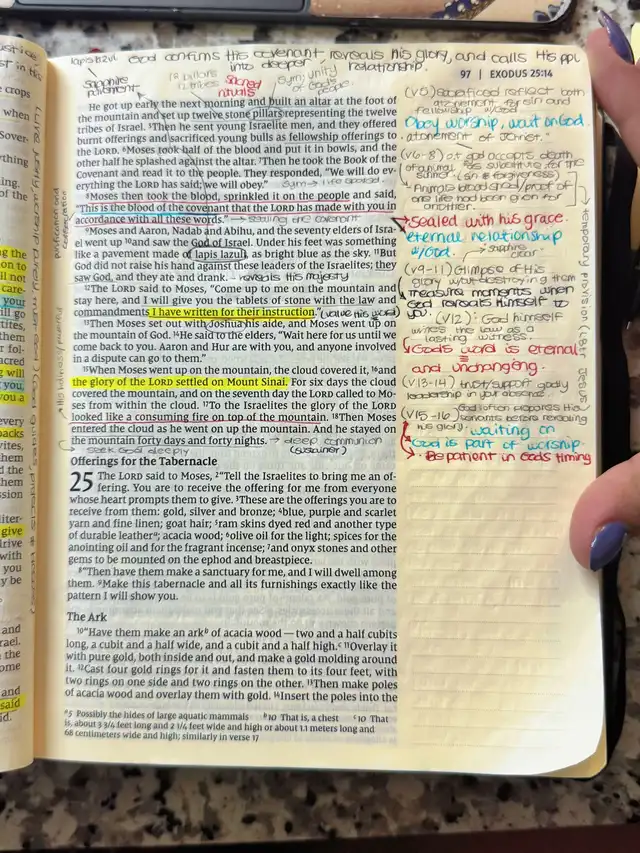 lapis lazuli God confirms His covenant, reveals his glory, and calls His ppl
into deeper relationship.
97 | EXODUS 25:14
sapphire pavement
12 pillars
Sacred rituals
sym: unity of God's people.
He got up early the next morning and built an altar at the foot of
the mountain and set up twelve stone pillars representing the twelve
tribes of Israel. 5Then he sent young Israelite men, and they offered
burnt offerings and sacrificed young bulls as fellowship offerings to
the LORD. 6Moses took half of the blood and put it in bowls, and the
other half he splashed against the altar. 7Then he took the Book of the
Covenant and read it to the people. They responded, "We will do ev-
erything the LORD has said; we will obey."
8Moses then took the blood, sprinkled it on the people and said,
"This is the blood of the covenant that the LORD has made with you in
accordance with all these words." → sealing the covenant
9Moses and Aaron, Nadab and Abihu, and the seventy elders of Isra-
el went up 10and saw the God of Israel. Under his feet was something
like a pavement made of lapis lazuli, as bright blue as the sky. 11But
God did not raise his hand against these leaders of the Israelites; they
saw God, and they ate and drank. - reveals His majesty
12The LORD said to Moses, "Come up to me on the mountain and
stay here, and I will give you the tablets of stone with the law and
commandments I have written for their instruction." (value his word)
13Then Moses set out with Joshua his aide, and Moses went up
on the mountain of God. 14He said to the elders, "Wait here for us until
we come back to you. Aaron and Hur are with you, and anyone involved
in a dispute can go to them."
15When Moses went up on the mountain, the cloud covered it, 16and
the glory of the LORD settled on Mount Sinai. For six days the cloud
covered the mountain, and on the seventh day the LORD called to Mo-
ses from within the cloud. 17To the Israelites the glory of the LORD
looked like a consuming fire on top of the mountain. 18Then Moses
entered the cloud as he went on up the mountain. And he stayed on
the mountain forty days and forty nights. → deep communion
seek God deeply (sustainer)
Offerings for the Tabernacle
25 The LORD said to Moses, 2"Tell the Israelites to bring me an of-
fering. You are to receive the offering for me from everyone
whose heart prompts them to give. 3These are the offerings you are to
receive from them: gold, silver and bronze; 4blue, purple and scarlet
yarn and fine linen; goat hair; 5ram skins dyed red and another type
of durable leathera; acacia wood; 6olive oil for the light; spices for the
anointing oil and for the fragrant incense; 7and onyx stones and other
gems to be mounted on the ephod and breastpiece.
8"Then have them make a sanctuary for me, and I will dwell among
them. 9Make this tabernacle and all its furnishings exactly like the
pattern I will show you.
The Ark
10"Have them make an arkb of acacia wood — two and a half cubits
long, a cubit and a half wide, and a cubit and a half high.c 11Overlay it
with pure gold, both inside and out, and make a gold molding around
it. 12Cast four gold rings for it and fasten them to its four feet, with
two rings on one side and two rings on the other. 13Then make poles
of acacia wood and overlay them with gold. 14Insert the poles into the
a5 Possibly the hides of large aquatic mammals b10 That is, a chest c10 That
is, about 3 3/4 feet long and 2 1/4 feet wide and high or about 1.1 meters long and
68 centimeters wide and high; similarly in verse 17
(v5) sacrificed reflect both
atonement for sin and
fellowship w/God
Obey worship, wait on God
atonement of Christ."
(v6-8) at god accepts death
of animal as substitute for the
sinner. (sin & forgiveness)
Animals blood grad/proof of
one life had been given for
another.
sealed with his grace.
eternal relationship
w/God. → sapphire clear
(v9-11) Glimpse of His
glory w/out destroying them
treasure moments when
God reveals Himself to
you. (V12): God himself
wires the law as a
lasting witness.
God's word is eternal
and unchanging.
(v13-14) trust/support godly
leadership in your absence.
(v15-16) God often prepares His
servants before revealing
his glory. waiting on
God is part of worship
• Be patient in Gods timing